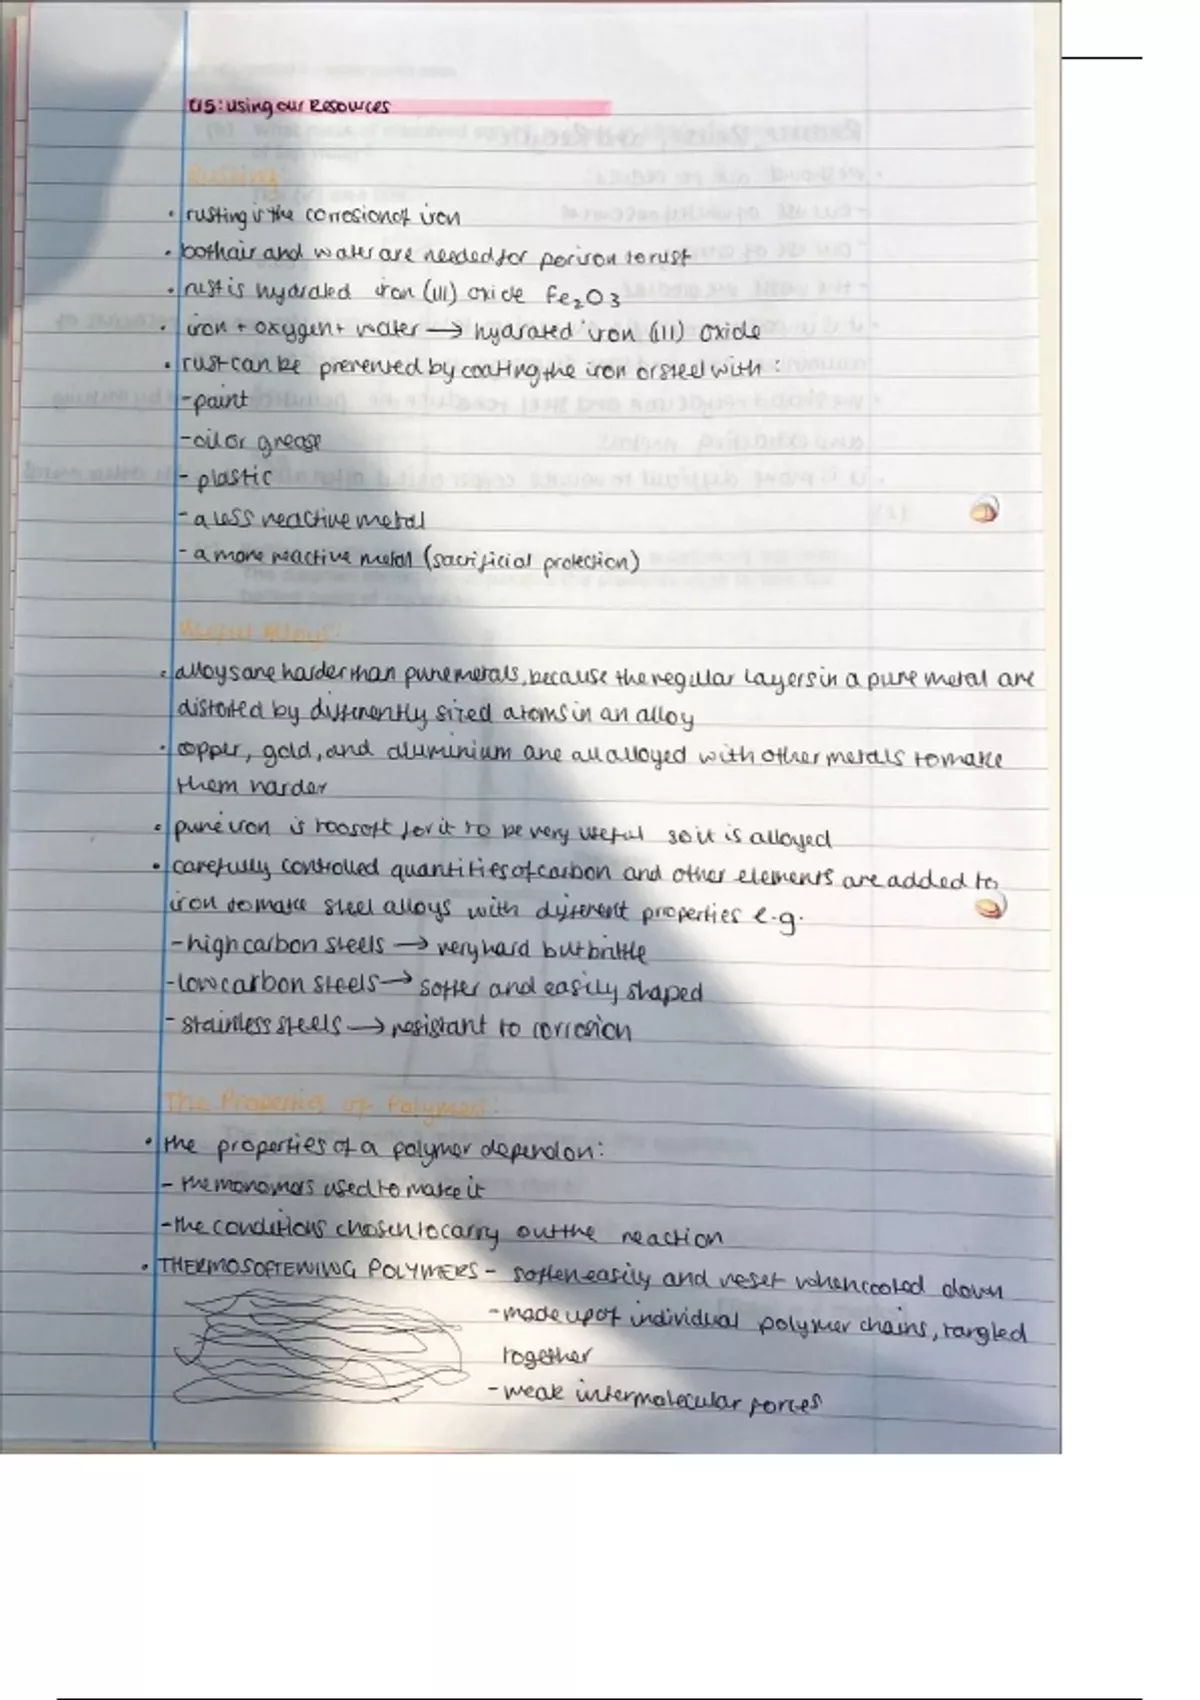 C15: using our Resources
Rusting:
• rusting is the corrosion of iron
• both air and water are needed for poriron to rust
• rust is hydrated iron (III) oxide Fe₂O₃
• iron + oxygen + water → hydrated iron (III) oxide
• rust can be prevented by coating the iron or steel with :
- paint
- oil or grease
- plastic
- a less reactive metal
- a more reactive metal (sacrificial protection)
Useful Alloys:
• alloys are harder than pure metals, because the regular layers in a pure metal are
distorted by differently sized atoms in an alloy
• copper, gold, and aluminium are all alloyed with other metals to make
them harder
• pure iron is too soft for it to be very useful so it is alloyed
• carefully controlled quantities of carbon and other elements are added to
iron to make steel alloys with different properties e.g.
- high carbon steels → very hard but brittle
- low carbon steels → softer and easily shaped
- stainless steels → resistant to corrosion
The Properties of Polymers:
• the properties of a polymer depend on:
- the monomers used to make it
- the conditions chosen to carry out the reaction
• THERMOSOFTENING POLYMERS - soften easily and reset when cooled down
- made up of individual polymer chains, tangled
together
- weak intermolecular forces